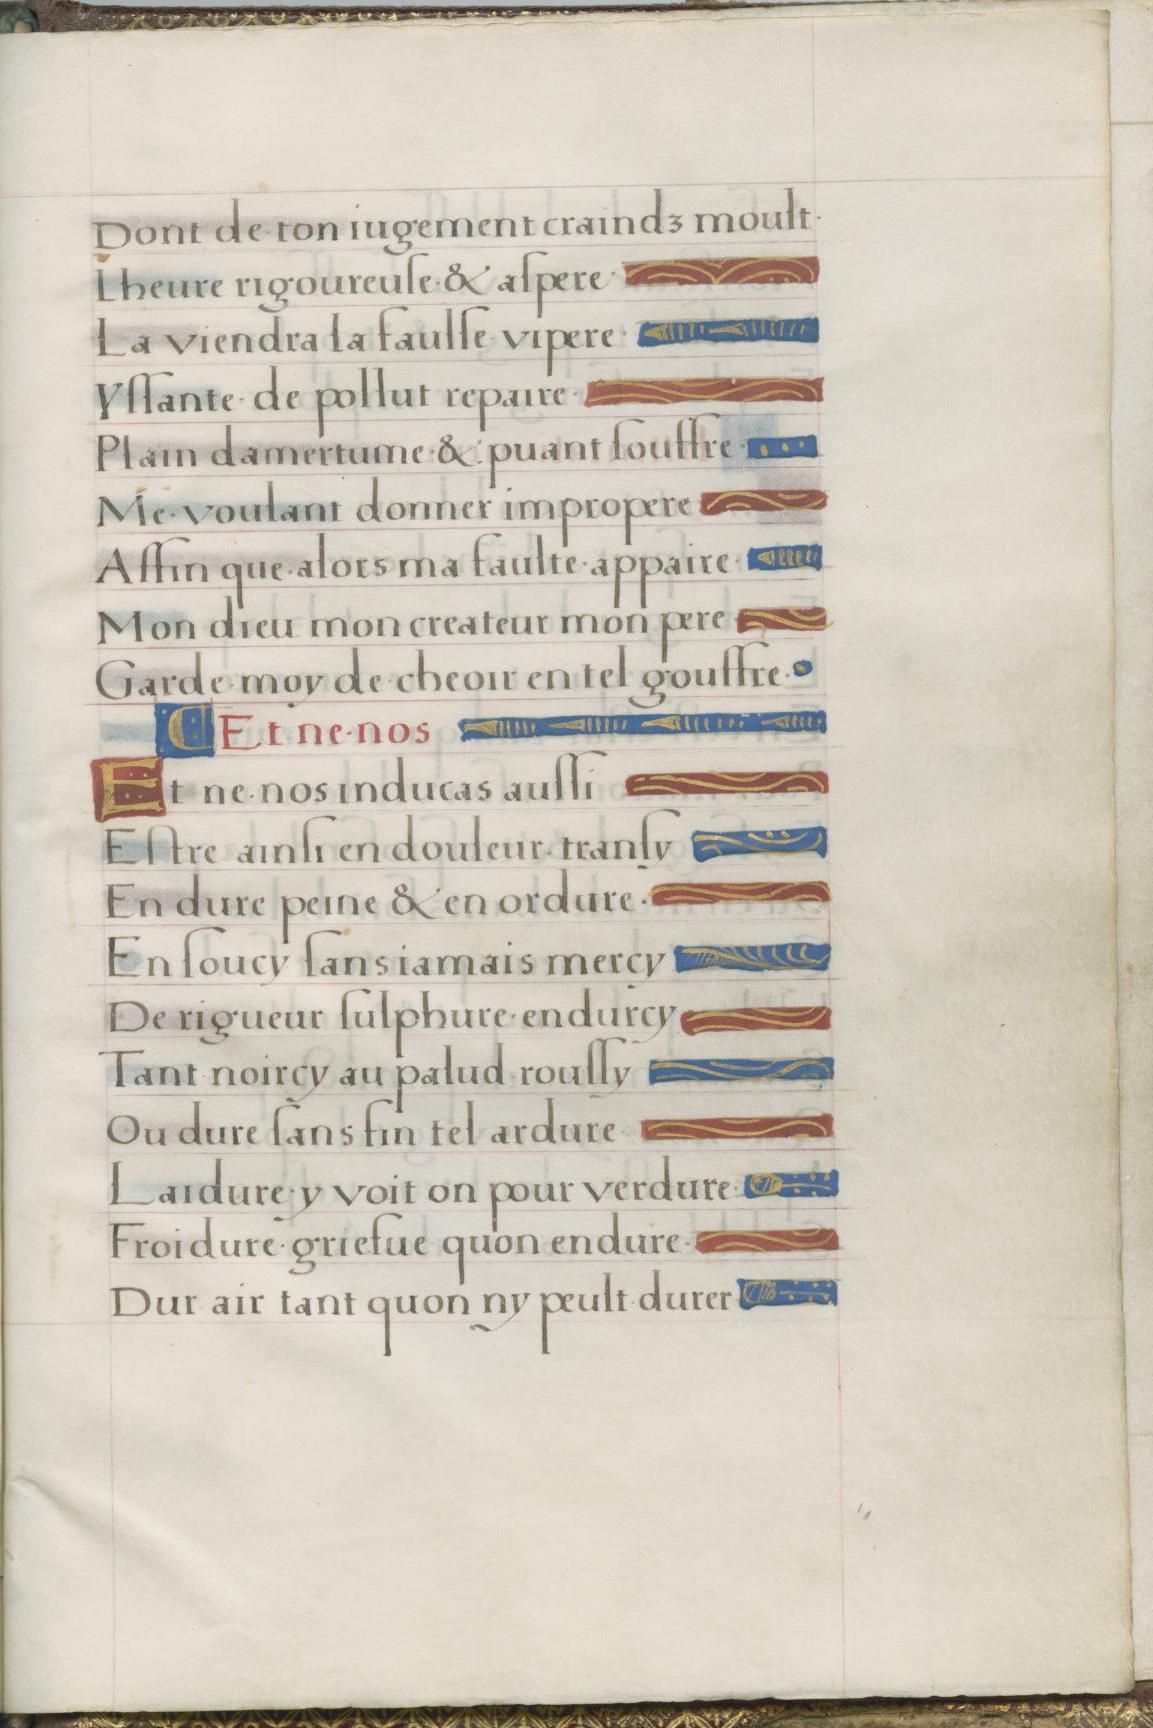 Dont de ton iugement craindz moult·
Lheure rigoureuſe & aſpere·
La viendra la faulſe vipere·
Yſſante de pollut repaire·
Plain damertume & puant ſouffre·
Me voulant donner impropere
Affin que alors ma faulte appaire·
Mon dieu mon createur mon pere
Garde moy de cheoir en tel gouffre·
C Et ne nos
Et ne nos inducas auſſi
Eſtre ainſi en douleur tranſy
En dure peine & en ordure·
En ſoucy ſans iamais mercy
De rigueur ſulphure endurcy
Tant noircy au palud rouſſy
Ou dure ſans fin tel ardure
Laidure y voit on pour verdure·
Froidure griefue quon endure·
Dur air tant quon ny peult durer